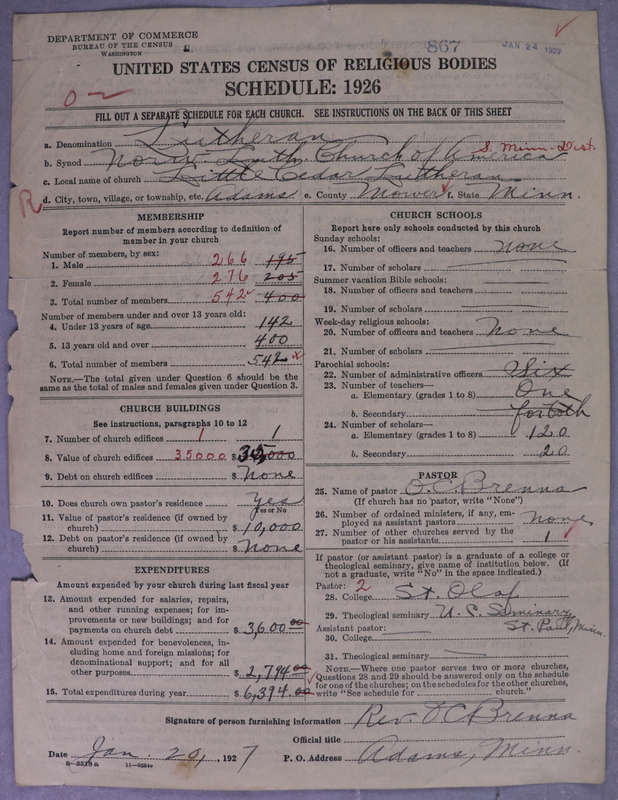 DEPARTMENT OF COMMERCE
BUREAU OF THE CENSUS
WASHINGTON
867
JAN 24 1927
UNITED STATES CENSUS OF RELIGIOUS BODIES
SCHEDULE: 1926
FILL OUT A SEPARATE SCHEDULE FOR EACH CHURCH. SEE INSTRUCTIONS ON THE BACK OF THIS SHEET
a. Denomination Lutheran
b. Synod Norw. Luth. Church of America S. Minn. Dist.
c. Local name of church Little Cedar Lutheran
R
d. City, town, village, or township, etc. Adams e. County Mower f. State Minn.
MEMBERSHIP
Report number of members according to definition of
member in your church
Number of members, by sex:
1. Male 266 195
2. Female 276 205
3. Total number of members 542 400
Number of members under and over 13 years old:
4. Under 13 years of age 142
5. 13 years old and over 400
6. Total number of members 542
NOTE.—The total given under Question 6 should be the
same as the total of males and females given under Question 3.
CHURCH BUILDINGS
See instructions, paragraphs 10 to 12
7. Number of church edifices 1 1
8. Value of church edifices 35000 $ 35,000
9. Debt on church edifices $ None
10. Does church own pastor's residence Yes
Yes or No
11. Value of pastor's residence (if owned by
church) $ 10,000
12. Debt on pastor's residence (if owned by
church) $ None
EXPENDITURES
Amount expended by your church during last fiscal year
13. Amount expended for salaries, repairs,
and other running expenses; for im-
provements or new buildings; and for
payments on church debt $ 3,600.00
14. Amount expended for benevolences, in-
cluding home and foreign missions; for
denominational support; and for all
other purposes $ 2,794.00
15. Total expenditures during year $ 6,394.00
CHURCH SCHOOLS
Report here only schools conducted by this church
Sunday schools:
16. Number of officers and teachers none
17. Number of scholars
Summer vacation Bible schools:
18. Number of officers and teachers
19. Number of scholars
Week-day religious schools:
20. Number of officers and teachers None
21. Number of scholars
Parochial schools:
22. Number of administrative officers Six
23. Number of teachers—
a. Elementary (grades 1 to 8) One
b. Secondary for both
24. Number of scholars—
a. Elementary (grades 1 to 8) 120
b. Secondary 20
PASTOR
25. Name of pastor O.C. Brenna
(If church has no pastor, write "None")
26. Number of ordained ministers, if any, em-
ployed as assistant pastors none
27. Number of other churches served by the
pastor or his assistants 1
If pastor (or assistant pastor) is a graduate of a college or
theological seminary, give name of institution below. (If
not a graduate, write "No" in the space indicated.)
Pastor: 2
28. College St. Olaf
29. Theological seminary U. C. Seminary
St. Paul, Minn.
Assistant pastor:
30. College
31. Theological seminary
NOTE.—Where one pastor serves two or more churches,
Questions 28 and 29 should be answered only on the schedule
for one of the churches; on the schedules for the other churches,
write "See schedule for church."
Signature of person furnishing information Rev. O C Brenna
Official title
Date Jan. 20, 1927 P. O. Address Adams, Minn.
8—5518a 11—9264e